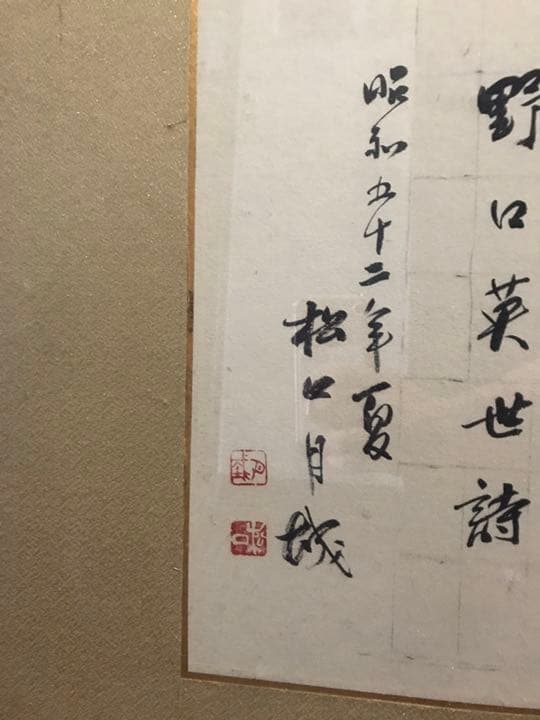 野口英世詩
昭和五十二年夏
松口月城